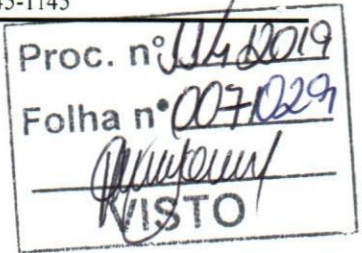 45-1145
Proc. nº 114/2019
Folha nº 007/029
VISTO